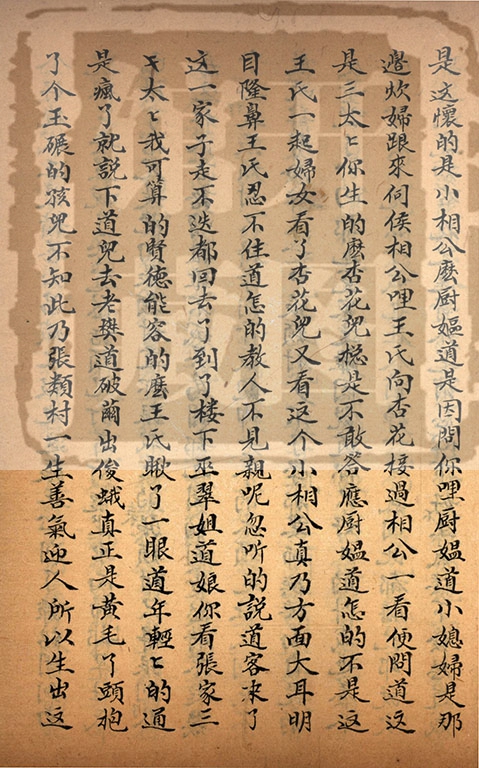 是这懷的是小相公麽厨嫗道是因問你哩厨媪道小媳婦是那
邉炊婦跟來伺侯相公哩王氏向杏花接過相公一看便問道这
是三太〻你生的麽杏花兒㧾是不敢答應厨媪道怎的不是这
王氏一起婦女看了杏花兒又看这个小相公真乃方面大耳明
目隆鼻王氏忍不住道怎的教人不見親呢忽听的説道客來了
这一家子走不迭都回去了到了楼下巫翠姐道娘你看張家三
太〻我可算的賢德能容的麽王氏瞅了一眼道年輕〻的通
是瘋了就説下道兒去老樊道破繭出俊蛾真正是黄毛了頭抱
了个玉碾的孩兒不知此乃張類村一生善氣迎人所以生出这